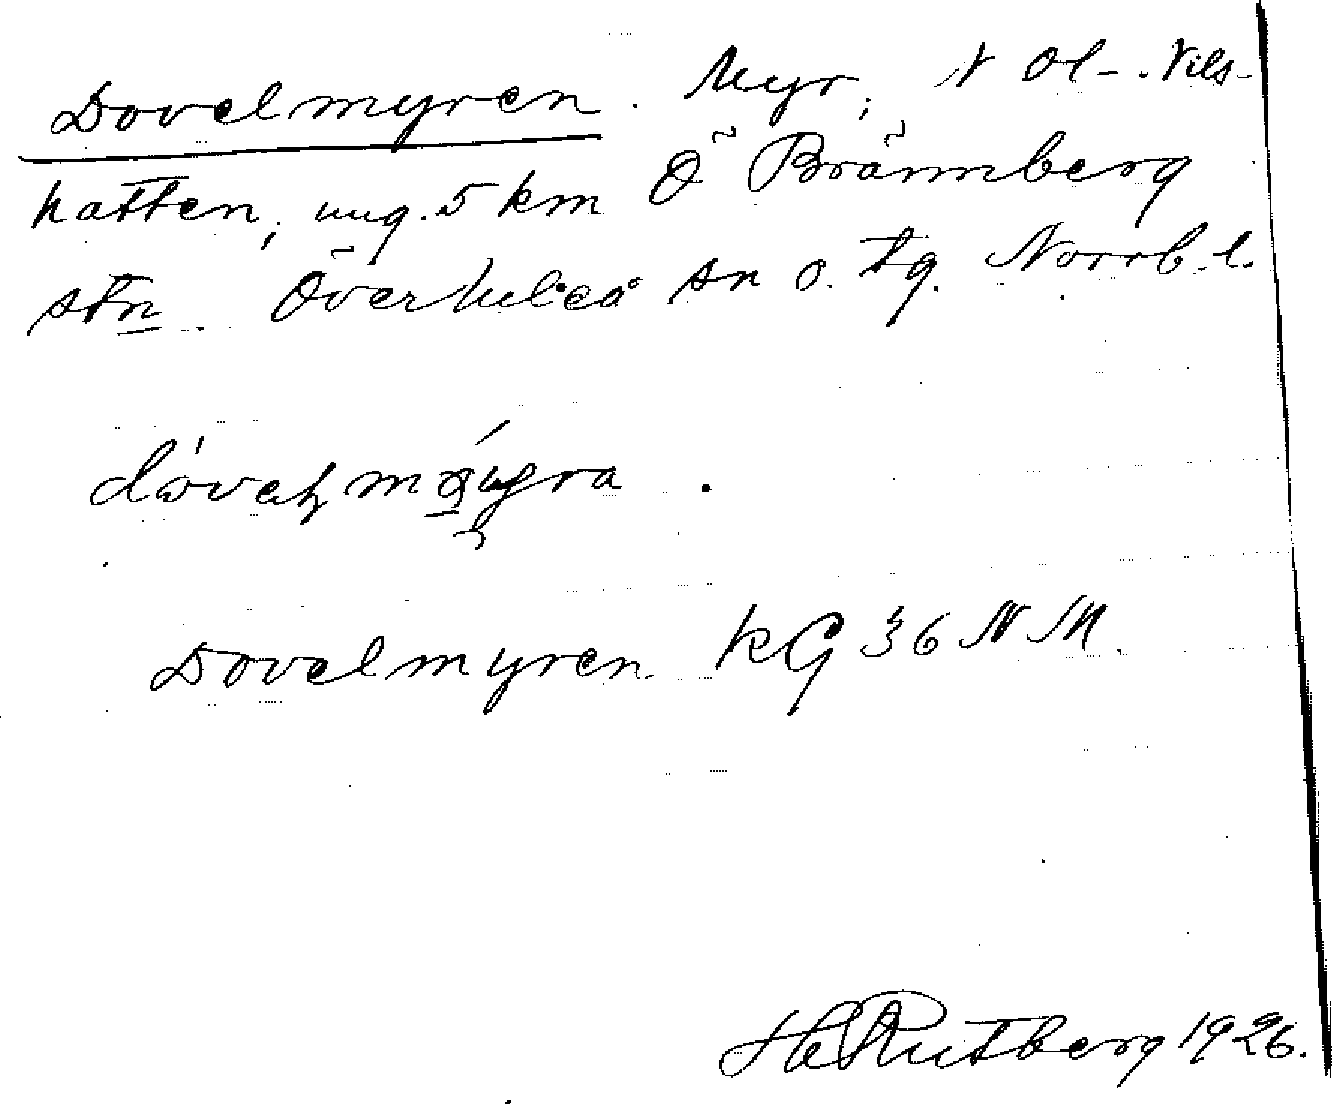 Dovelmyren. Myr, N Ol-Nils-
hatten, ung. 5 km Ö Brännberg
stn. Överluleå sn o. tg. Norrb. l.
Dovelmyren KG 36 NM.
H Rutberg 1926.